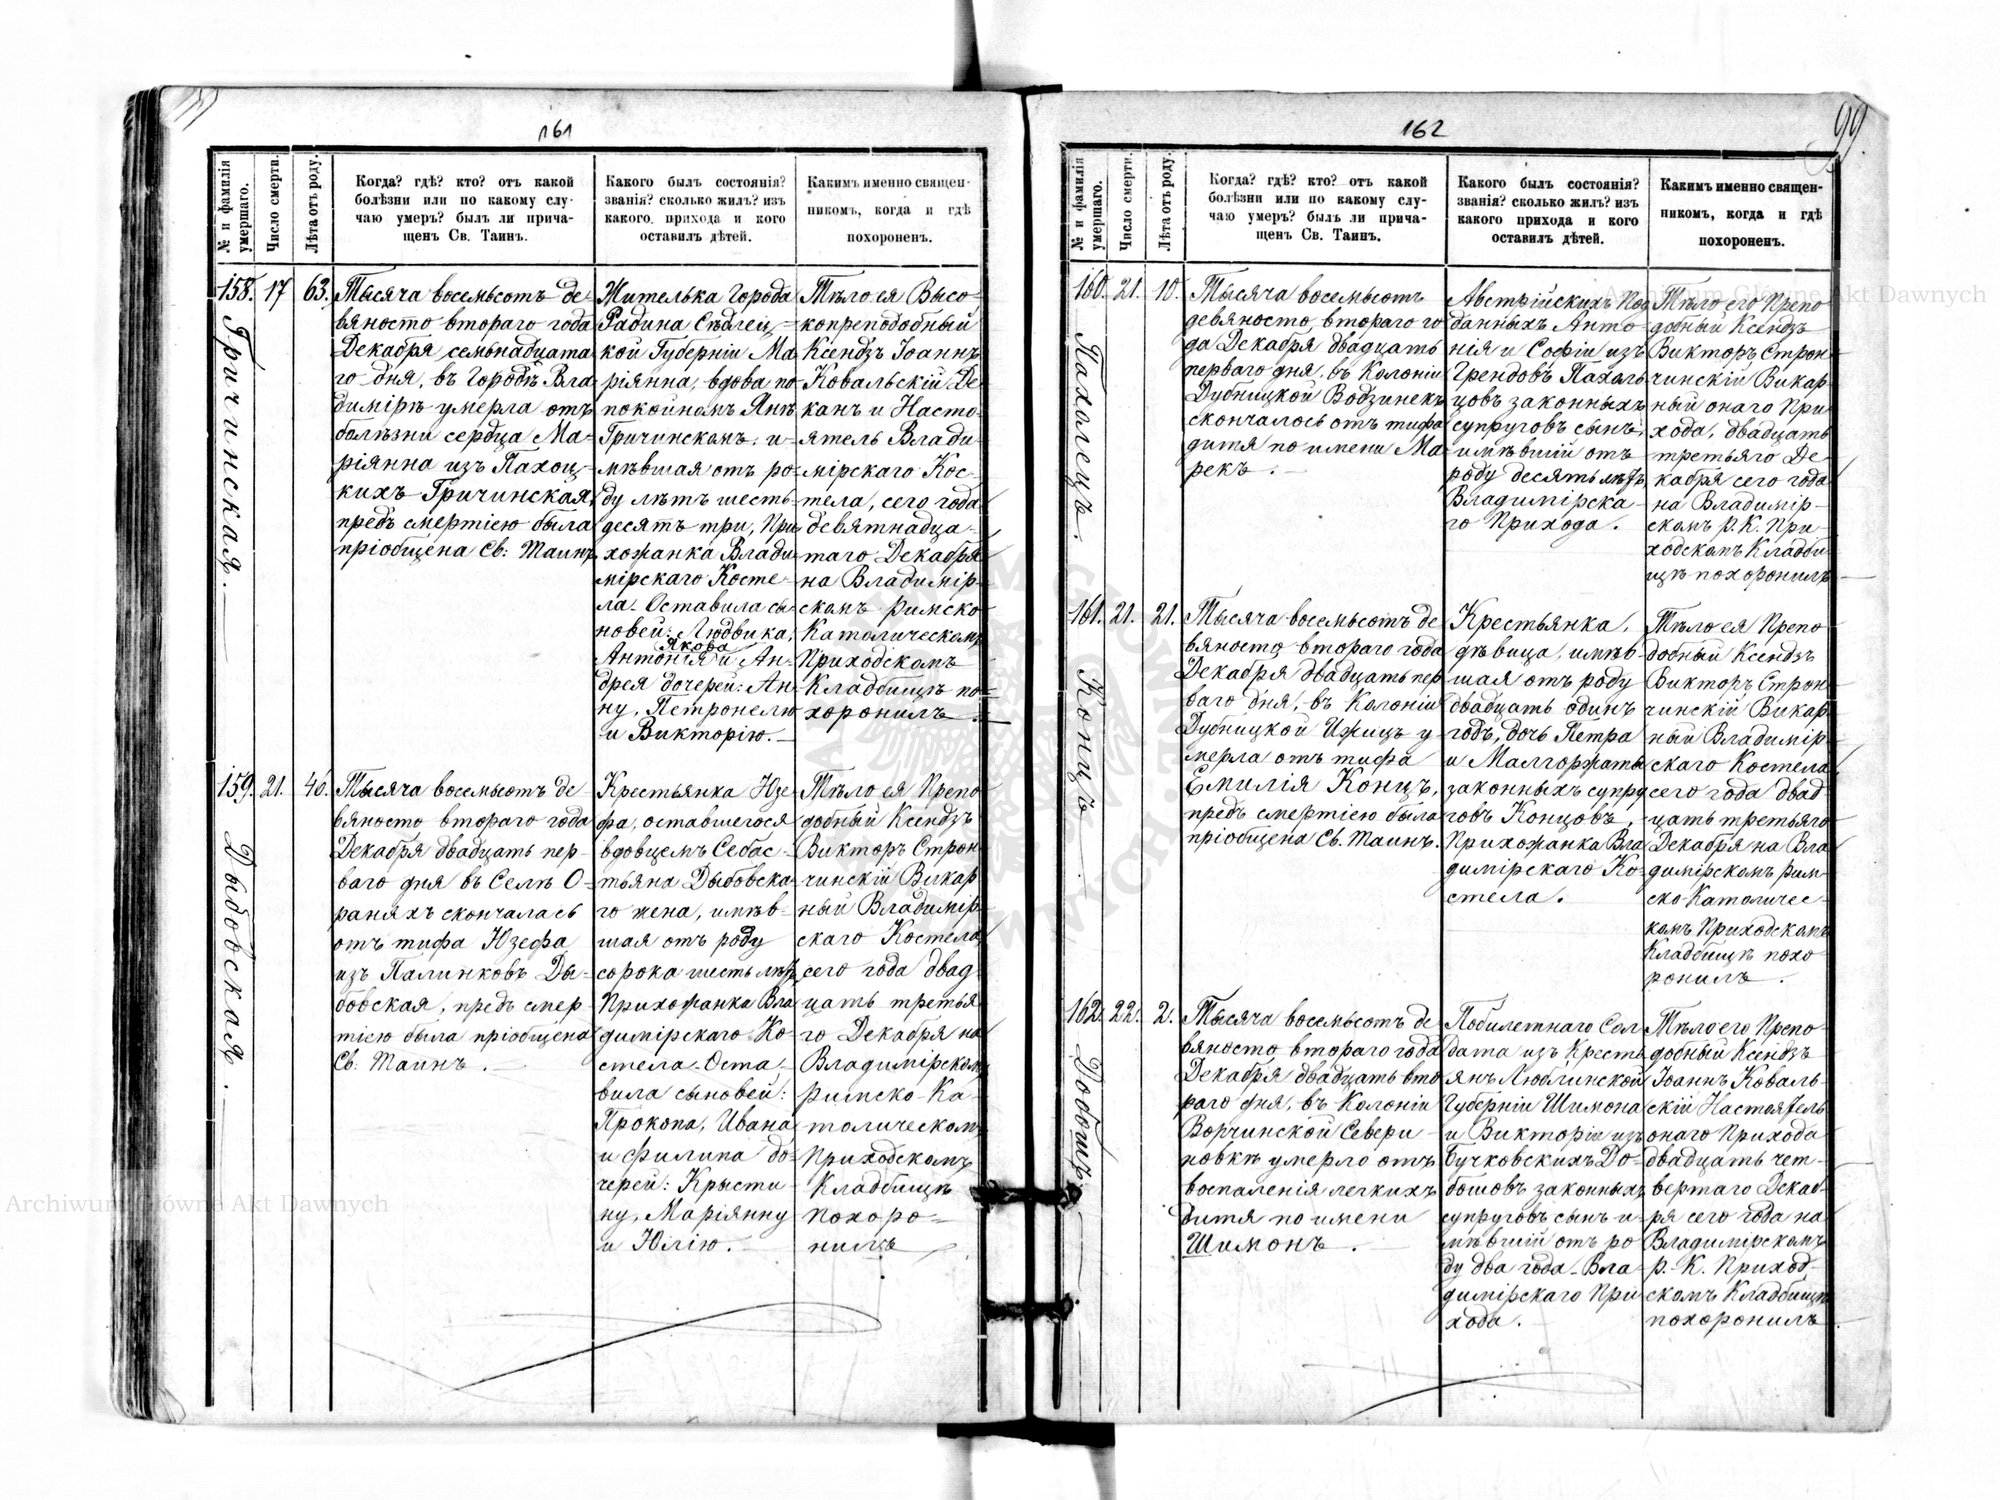 161
№ и фамилія умершаго.
Число смерти.
Лѣта отъ роду.
Когда? гдѣ? кто? отъ какой
болѣзни или по какому слу-
чаю умеръ? былъ ли прича-
щенъ Св. Таинъ.
Какого былъ состоянія?
званія? сколько жилъ? изъ
какого прихода и кого
оставилъ дѣтей.
Какимъ именно священ-
никомъ, когда и гдѣ
похороненъ.
158.
Гричинская.
17
63.
Тысяча восемьсотъ де-
вяносто втораго года
Декабря семьнадцата
го дня, въ Городѣ Вла
димірѣ умерла отъ
болѣзни сердца Ма-
ріянна изъ Пахоц-
кихъ Гричинская,
предъ смертію была
пріобщена Св: Таинъ
Жителька Города
Радина Сѣдлец-
кой Губерніи Ма-
ріянна, вдова по
покойномъ Янѣ
Гричинскомъ, и-
мѣвшая отъ ро-
ду лѣтъ шесть-
десятъ три, При
хожанка Влади
мірскаго Косте-
ла. Оставила сы-
новей: Людвика,
Якова
Антонія и Ан-
дрея дочерей: Ан-
ну, Петронелю
и Викторію.
Тѣло ея Высо-
копреподобный
Ксендзъ Іоаннъ
Ковальскій Де
канъ и Насто-
ятель Влади
мірскаго Кос-
тела, сего года
девятнадца-
таго Декабря
на Владимір-
скомъ Римско-
Католическомъ
Приходскомъ
Кладбищѣ по-
хоронилъ.
159.
Дыбовская.
21.
46.
Тысяча восемьсотъ де-
вяносто втораго года
Декабря двадцать пер-
ваго дня въ Селѣ О-
раняхъ скончалась
отъ тифа Юзефа
изъ Палинковъ Ды-
бовская, предъ смер
тію была пріобщена
Св. Таинъ.
Крестьянка Юзе
фа, оставшегося
вдовцемъ Себас-
тьяна Дыбовска-
го жена, имѣв-
шая отъ роду
сорока шесть лѣтъ
Прихожанка Вла
димірскаго Ко-
стела. Оста-
вила сыновей:
Прокопа, Ивана
и Филипа до-
черей: Крысти
ну, Маріянну
и Юлію.
Тѣло ея Препо
добный Ксендзъ
Викторъ Строн
чинскій Викар
ный Владимір-
скаго Костела
сего года двад-
цать третья
го Декабря на
Владимірскомъ
Римско-Ка-
толическомъ
Приходскомъ
Кладбищѣ
похоро-
нилъ
162
99.
№ и фамилія умершаго.
Число смерти.
Лѣта отъ роду.
Когда? гдѣ? кто? отъ какой
болѣзни или по какому слу-
чаю умеръ? былъ ли прича-
щенъ Св. Таинъ.
Какого былъ состоянія?
званія? сколько жилъ? изъ
какого прихода и кого
оставилъ дѣтей.
Какимъ именно священ-
никомъ, когда и гдѣ
похороненъ.
160.
Пахолецъ.
21.
10.
Тысяча восемьсотъ
девяносто, втораго го
да Декабря двадцать
перваго дня, въ Колоніи
Дубницкой Водзинекъ
скончалось отъ тифа
дитя по имени Ма
рекъ.
Австрійскихъ Под
данныхъ Анто-
нія и Софіи изъ
Грендовъ Пахоль
цовъ законныхъ
супруговъ сынъ,
имѣвшій отъ
роду десять лѣтъ
Владимірска-
го Прихода.
Тѣло его Препо
добный Ксендзъ
Викторъ Строн-
чинскій Викар
ный онаго При
хода, двадцать
третьяго Де-
кабря сего года
на Владимір-
скомъ Р. К. При-
ходскомъ Кладби
щѣ похоронилъ
161.
Концъ.
21.
21.
Тысяча восемьсотъ де
вяносто втораго года
Декабря двадцать пер
ваго дня, въ Колоніи
Дубницкой Ижицъ у-
мерла отъ тифа
Емилія Концъ,
предъ смертію была
пріобщена Св. Таинъ.
Крестьянка,
дѣвица, имѣв-
шая отъ роду
двадцать одинъ
годъ, дочь Петра
и Малгоржаты
законныхъ супру
говъ Концовъ,
Прихожанка Вла
димірскаго Ко-
стела.
Тѣло ея Препо
добный Ксендзъ
Викторъ Строн
чинскій Викар
ный Владимір
скаго Костела
сего года двад-
цать третьяго
Декабря на Вла
димірскомъ Рим
ско-Католичес-
комъ Приходскомъ
Кладбищѣ похо
ронилъ.
162.
Добошъ.
22.
2.
Тысяча восемьсотъ де
вяносто втораго года
Декабря двадцать вто
раго дня, въ Колоніи
Ворчинской Севери
новкѣ умерло отъ
воспаленія легкихъ
дитя по имени
Шимонъ.
Побилетнаго Сол
дата изъ Кресть
янъ Люблинской
Губерніи Шимона
и Викторіи изъ
Бучковскихъ До-
бошовъ законныхъ
супруговъ сынъ и-
мѣвшій отъ ро
ду два года. Вла-
димірскаго При
хода.
Тѣло его Препо
добный Ксендзъ
Іоаннъ Коваль-
скій Настоятель
онаго Прихода
двадцать чет-
вертаго Декаб-
ря сего года на
Владимірскомъ
Р.-К. Приход-
скомъ Кладбищѣ
похоронилъ
Archiwum Główne Akt Dawnych
Archiwum Główne Akt Dawnych